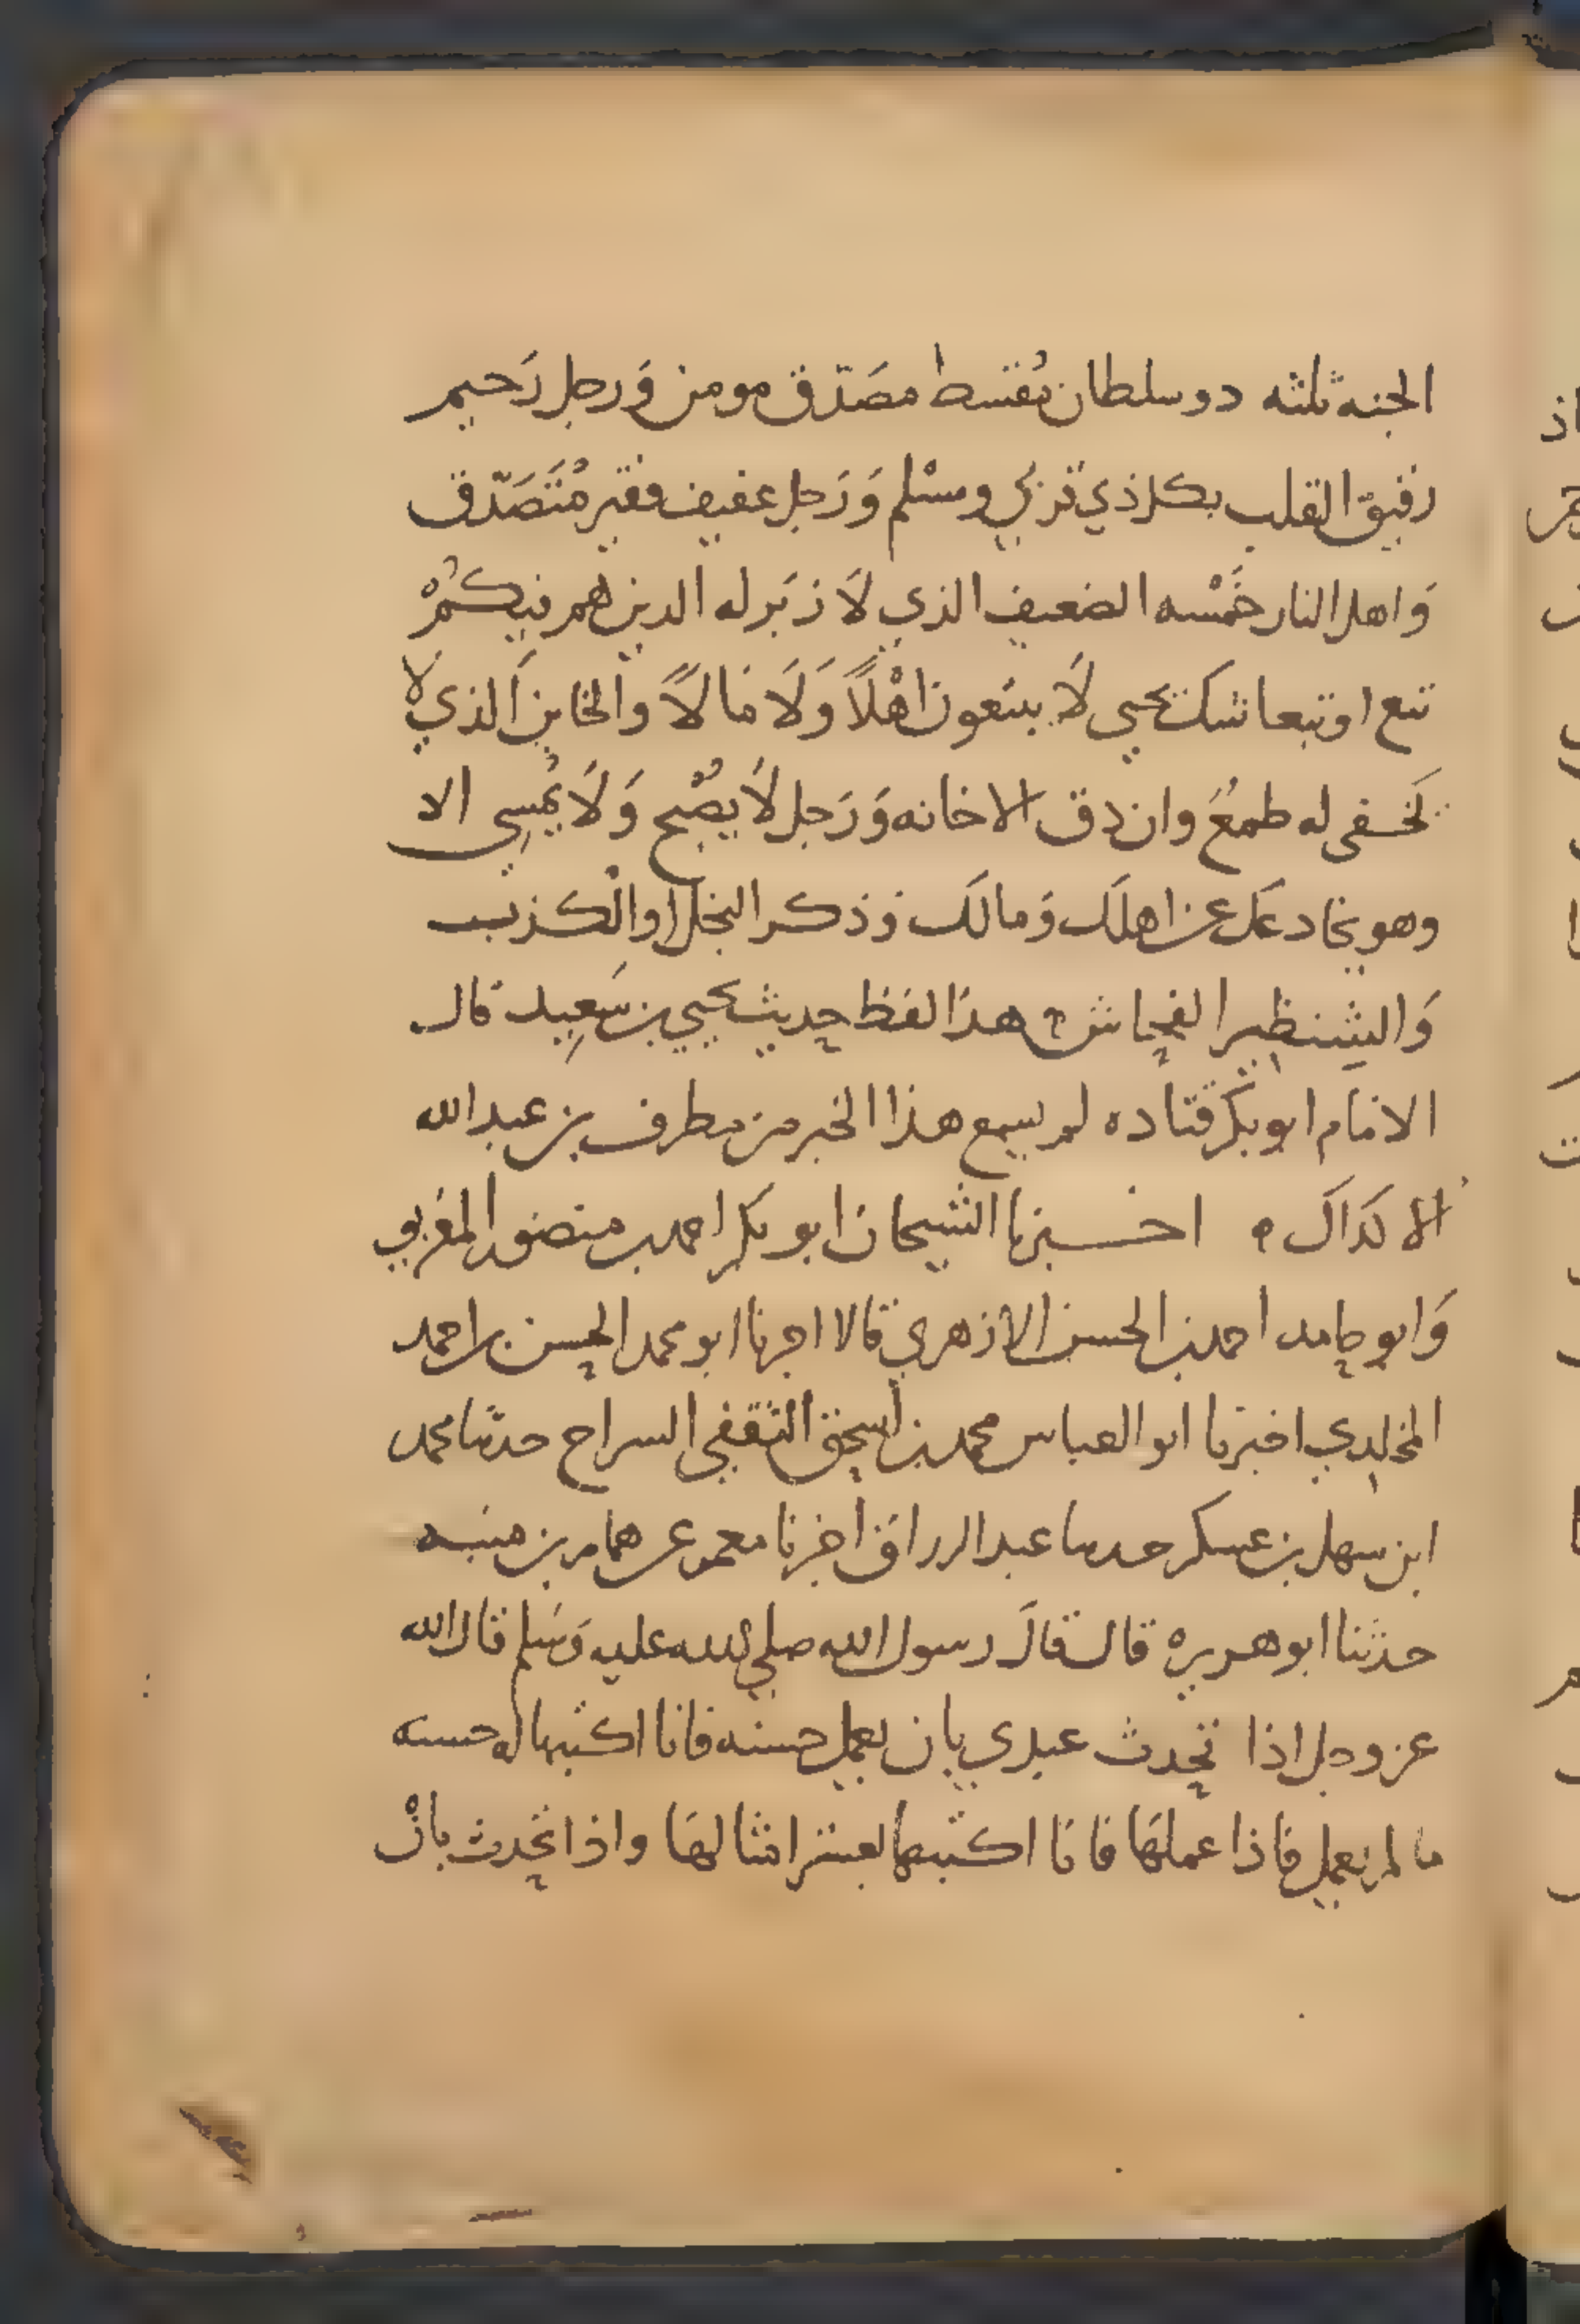 الجنه ثلثه دو سلطان مُقسط مصَدّق مومن وَرجل رَحيم
رفيق القلب بكل ذي قربي ومسْلم وَرَجل عفيف فقير مُتَصَدّق
وَاهل النار خَمْسه الضعيف الذي لاَ زَبَر له الدين هم فيكُمْ
تبع او تبعا شك يحيى لاَ يبتغون اهْلاً وَلاَ مَالاً والخاين الذي لا
يَخفى له طمعُ وان دق الا خانه وَرَجل لاَ يصْبح وَلاَ يُمْسِي الا
وهو يخادعك عن اهلك وَمالك وَذكر البخل او الكذب
وَالشنظير الفحاش هذا لفظ حديث يحيي بن سَعِيد قال
الامام ابو بكر قتاده لم يسمع هذا الخبر من مطرف بن عبد الله
الا كذاك ه اخبرنا الشيخان ابو بكر احمد بن منصور المغربي
وَابو حامد احمد بن الحسن الازهري قالا اخبرنا ابو محمد الحسن بن احمد
المخلدي اخبرنا ابو العباس محمد بن اسحق الثقفي السراج حدثنا محمد
ابن سهل بن عسكر حدثنا عبد الرزاق اخبرنا معمر عن همام بن منبه
حدثنا ابو هريره قال قال رسول الله صلي الله عليه وَسَلم قال الله
عز وجل اذا تحدث عبدي بان يعمل حسنه فانا اكتبها له حسنه
ما لم يعمل فاذا عملهَا فانا اكتبها بعشر امثالهَا واذا تحدث بانْ